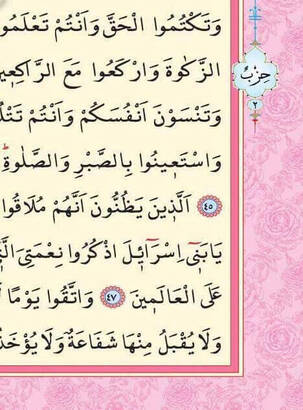 وَتَكْتُمُوا الْحَقَّ وَاَنْتُمْ تَعْلَمُو
الزَّكٰوةَ وَارْكَعُوا مَعَ الرَّاكِعِي
وَتَنْسَوْنَ اَنْفُسَكُمْ وَاَنْتُمْ تَتْلُ
وَاسْتَعِينُوا بِالصَّبْرِ وَالصَّلٰوةِ
٤٥ اَلَّذِينَ يَظُنُّونَ اَنَّهُمْ مُلَاقُوا
يَابَنِٓي اِسْرَٓائِلَ اذْكُرُوا نِعْمَتِيَ الَّتِ
عَلَى الْعَالَمِينَ ٤٧ وَاتَّقُوا يَوْمًا لَ
وَلَا يُقْبَلُ مِنْهَا شَفَاعَةٌ وَلَا يُؤْخَذُ
حِزْبٌ
٢